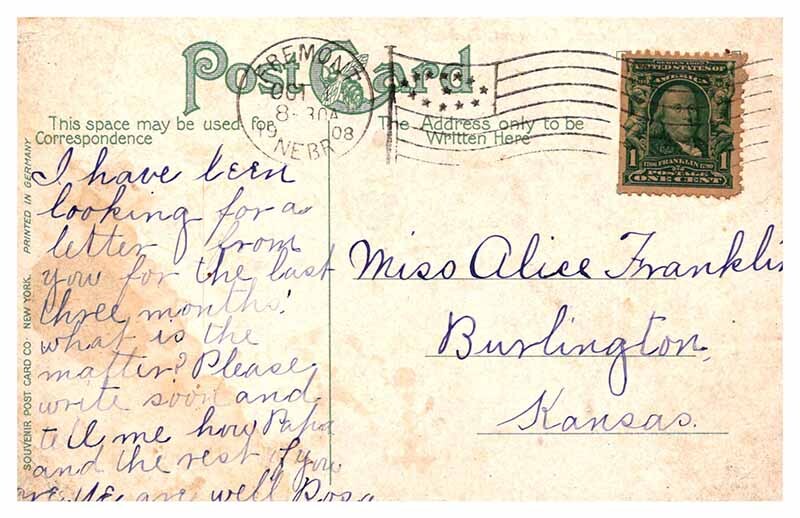 Post Card
FREMONT
OCT
8-30A
1908
NEBR.
This space may be used for
Correspondence
The Address only to be
Written Here
SERIES 1902
UNITED STATES OF
AMERICA
1 1706 FRANKLIN 1790 1
POSTAGE
ONE CENT
I have been
looking for a
letter from
you for the last
three months!
what is the
matter? Please
write soon and
tell me how Papa
and the rest of you
are. We are well Rosa
Miss Alice Franklin
Burlington,
Kansas.
SOUVENIR POST CARD CO. NEW YORK. PRINTED IN GERMANY